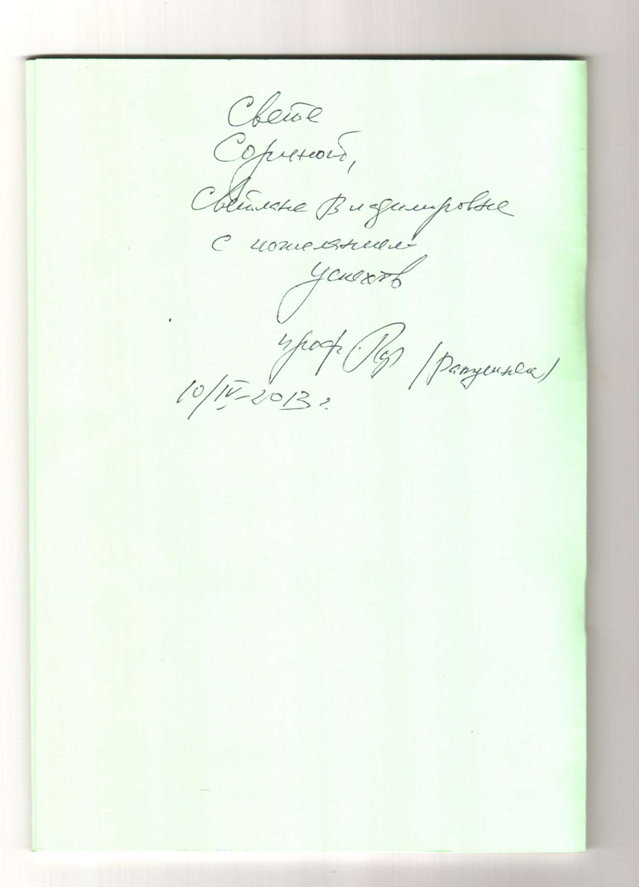 Свете
Сориной,
Светлане Владимировне
с пожеланием
успехов
проф.
10/IV-2013 г.